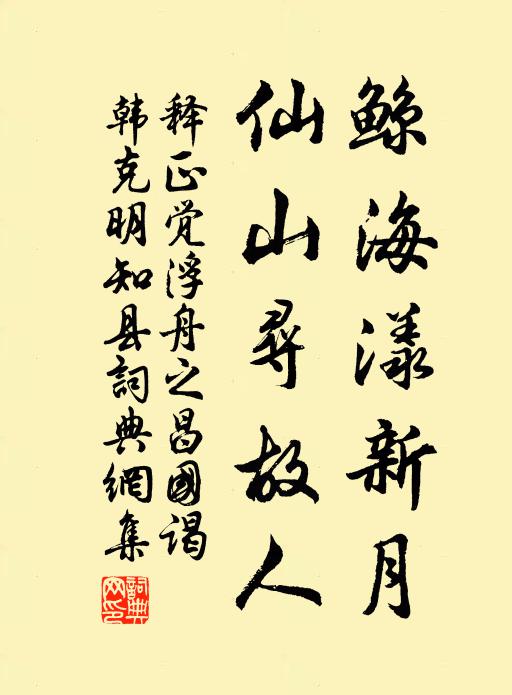 鲸海漾新月
仙山寻故人
释正觉浮舟之昌國谒
韩克明知县詞典網集
詞典网印